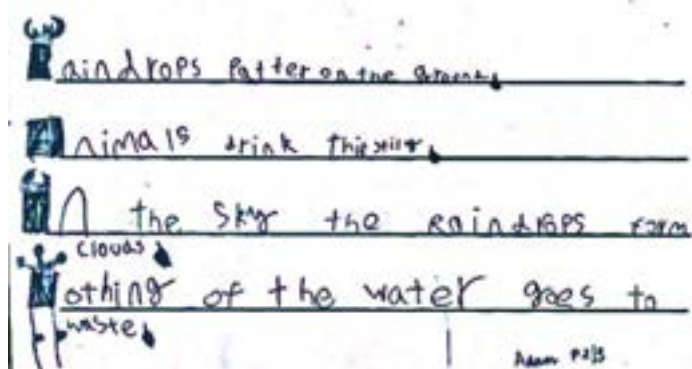 Raindrops Patter on the ground.
Animals drink thirstily.
In the sky the raindrops form
clouds.
Nothing of the water goes to
waste.
Adam P2/3